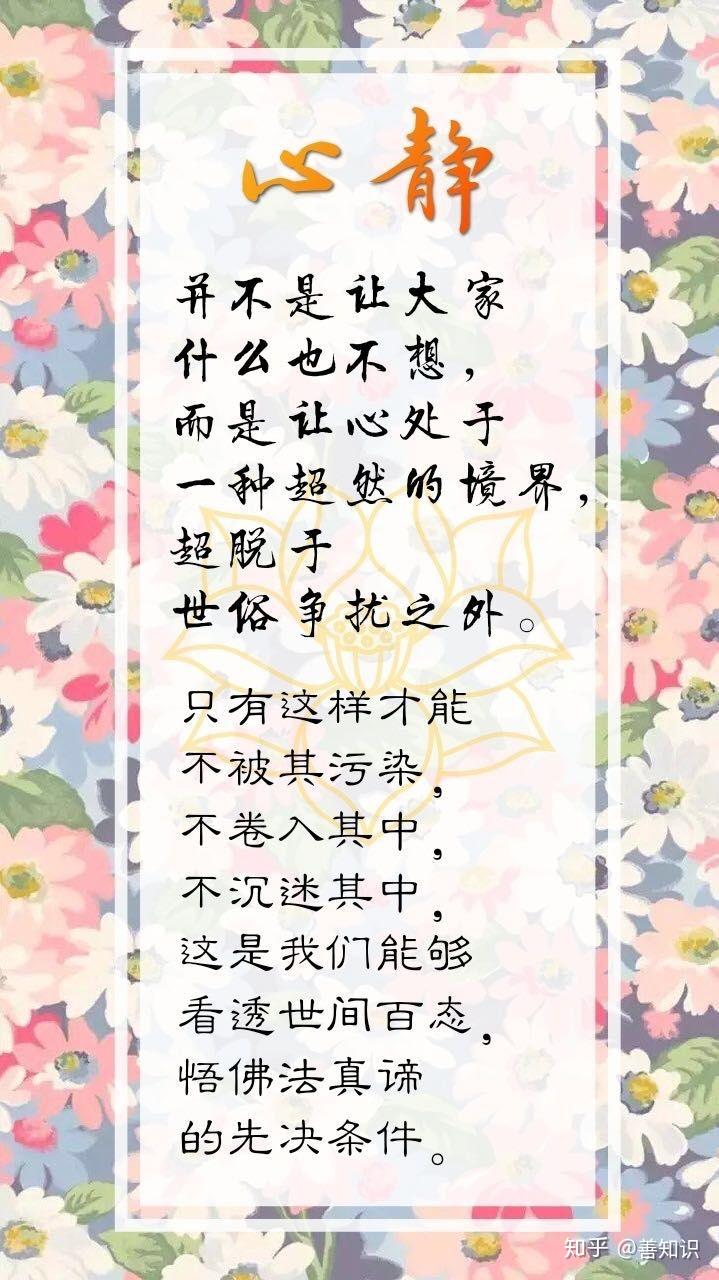 心静
并不是让大家
什么也不想，
而是让心处于
一种超然的境界，
超脱于
世俗争扰之外。
只有这样才能
不被其污染，
不卷入其中，
不沉迷其中，
这是我们能够
看透世间百态，
悟佛法真谛
的先决条件。
知乎 @善知识